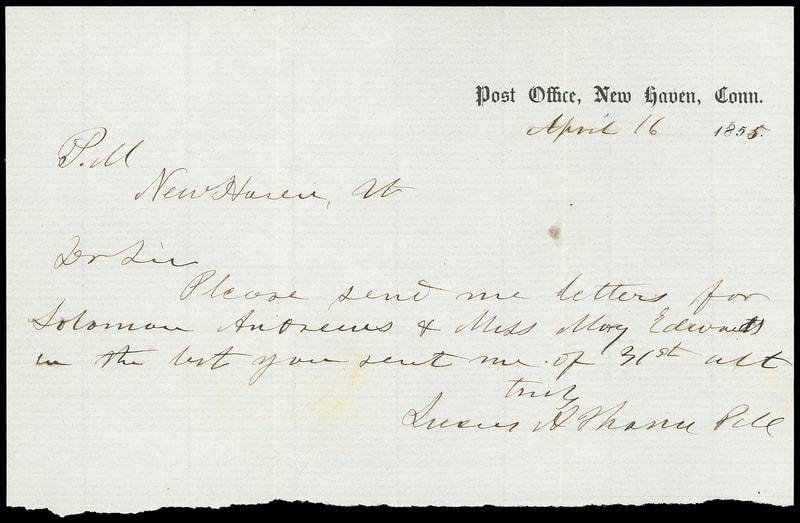 Post Office, New Haven, Conn.
April 16 1855.
P. M
New Haven, Vt
Dr Sir
Please send me letters for
Solomon Andrews & Miss Mary Edwards
in the list you sent me of 31st ult
truly
Lucius A Thomas P M